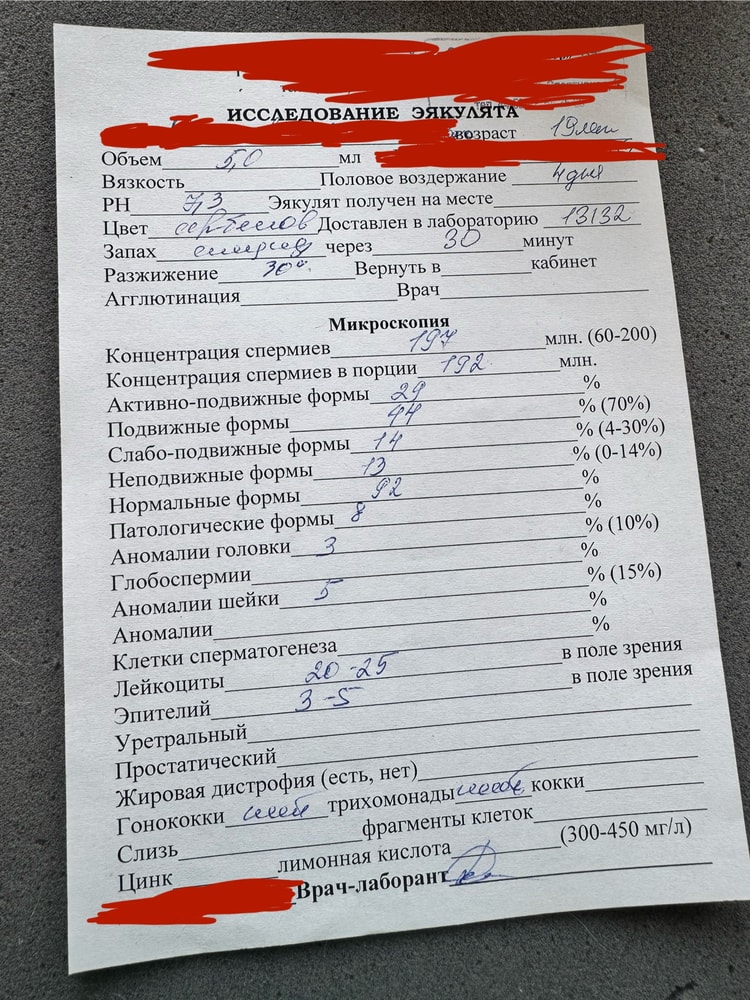 ИССЛЕДОВАНИЕ ЭЯКУЛЯТА
возраст 19 лет
Объем 5,0 мл
Вязкость Половое воздержание 4 дня
PH 7,3 Эякулят получен на месте
Цвет Доставлен в лабораторию 13132
Запах через 30 минут
Разжижение 30 Вернуть в кабинет
Агглютинация Врач
Микроскопия
Концентрация спермиев 197 млн. (60-200)
Концентрация спермиев в порции 192 млн.
Активно-подвижные формы 29 %
Подвижные формы 44 % (70%)
Слабо-подвижные формы 14 % (4-30%)
Неподвижные формы 13 % (0-14%)
Нормальные формы 92 %
Патологические формы 8 %
Аномалии головки 3 % (10%)
Глобоспермии %
Аномалии шейки 5 % (15%)
Аномалии %
Клетки сперматогенеза %
Лейкоциты 20-25 в поле зрения
Эпителий 3-5 в поле зрения
Уретральный
Простатический
Жировая дистрофия (есть, нет)
Гонококки трихомонады кокки
Слизь фрагменты клеток
Цинк лимонная кислота (300-450 мг/л)
Врач-лаборант